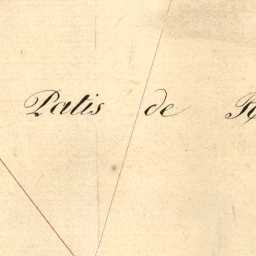 Patis de